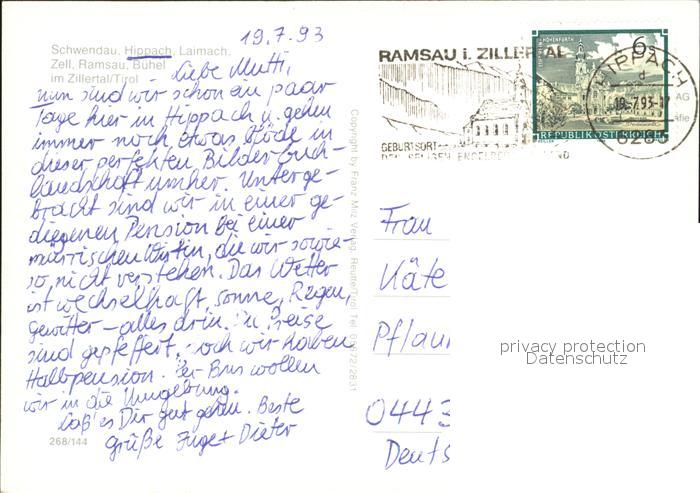 19.7.93
Schwendau, Hippach, Laimach,
Zell, Ramsau, Bühel
im Zillertal/Tirol
Liebe Mutti,
nun sind wir schon ein paar
Tage hier in Hippach u. gehen
immer noch etwas blöde in
dieser perfekten Bilderbuch-
landschaft umher. Unterge-
bracht sind wir in einer ge-
diegenen Pension bei einer
mürrischen Wirtin, die wir sowie-
so nicht verstehen. Das Wetter
ist wechselhaft, Sonne, Regen,
Gewitter – alles drin. Die Preise
sind gepfeffert, doch wir haben
Halbpension. Per Bus wollen
wir in die Umgebung.
Laß es Dir gut gehen. Beste
Grüße Inge + Dieter
268/144
Copyright by Franz Milz Verlag Reutte/Tirol Tel.
RAMSAU i. ZILLERTAL
GEBURTSORT
HIPPACH
d
19.-7.93-17
6283
6 S
REPUBLIK ÖSTERREICH
AG
Frau
Käte
Pflau
0443
Deuts
privacy protection
Datenschutz